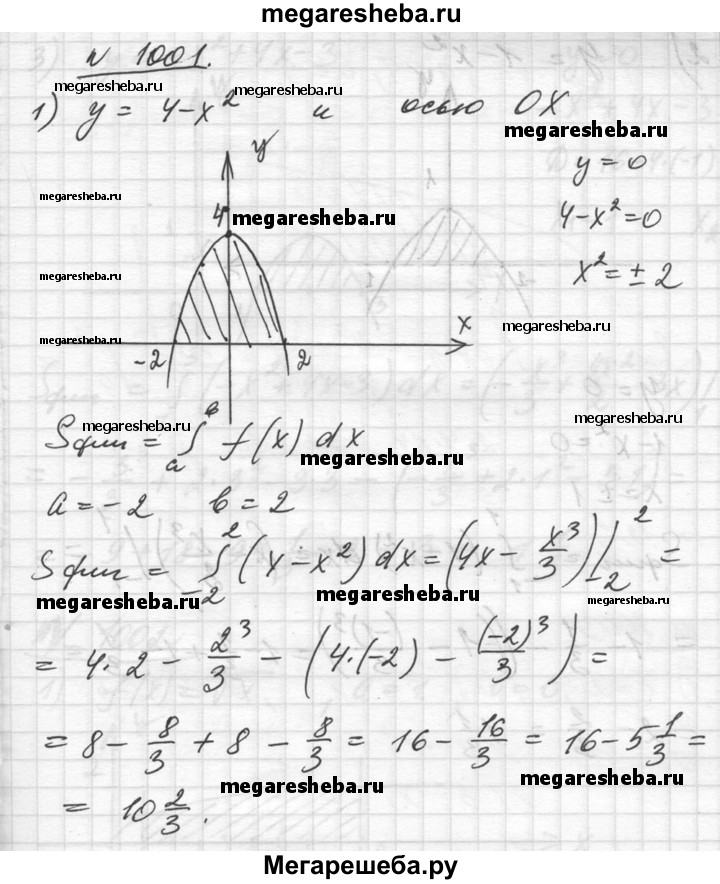 megaresheba.ru
N 1001.
megaresheba.ru megaresheba.ru
1) y = 4-x² и осью OX
megaresheba.ru
y y = 0
megaresheba.ru
4 megaresheba.ru 4-x²=0
megaresheba.ru x²=±2
x megaresheba.ru
megaresheba.ru
-2 2
megaresheba.ru megaresheba.ru
Sфиг = ∫ₐᵇ f(x) dx
megaresheba.ru
a=-2 b=2
Sфиг = ∫₋₂² (4-x²) dx = (4x - x³/3) |₋₂² =
megaresheba.ru megaresheba.ru megaresheba.ru
= 4·2 - 2³/3 - (4·(-2) - (-2)³/3) =
= 8 - 8/3 + 8 - 8/3 = 16 - 16/3 = 16 - 5 1/3 =
megaresheba.ru megaresheba.ru
= 10 2/3.
Мегарешеба.ру